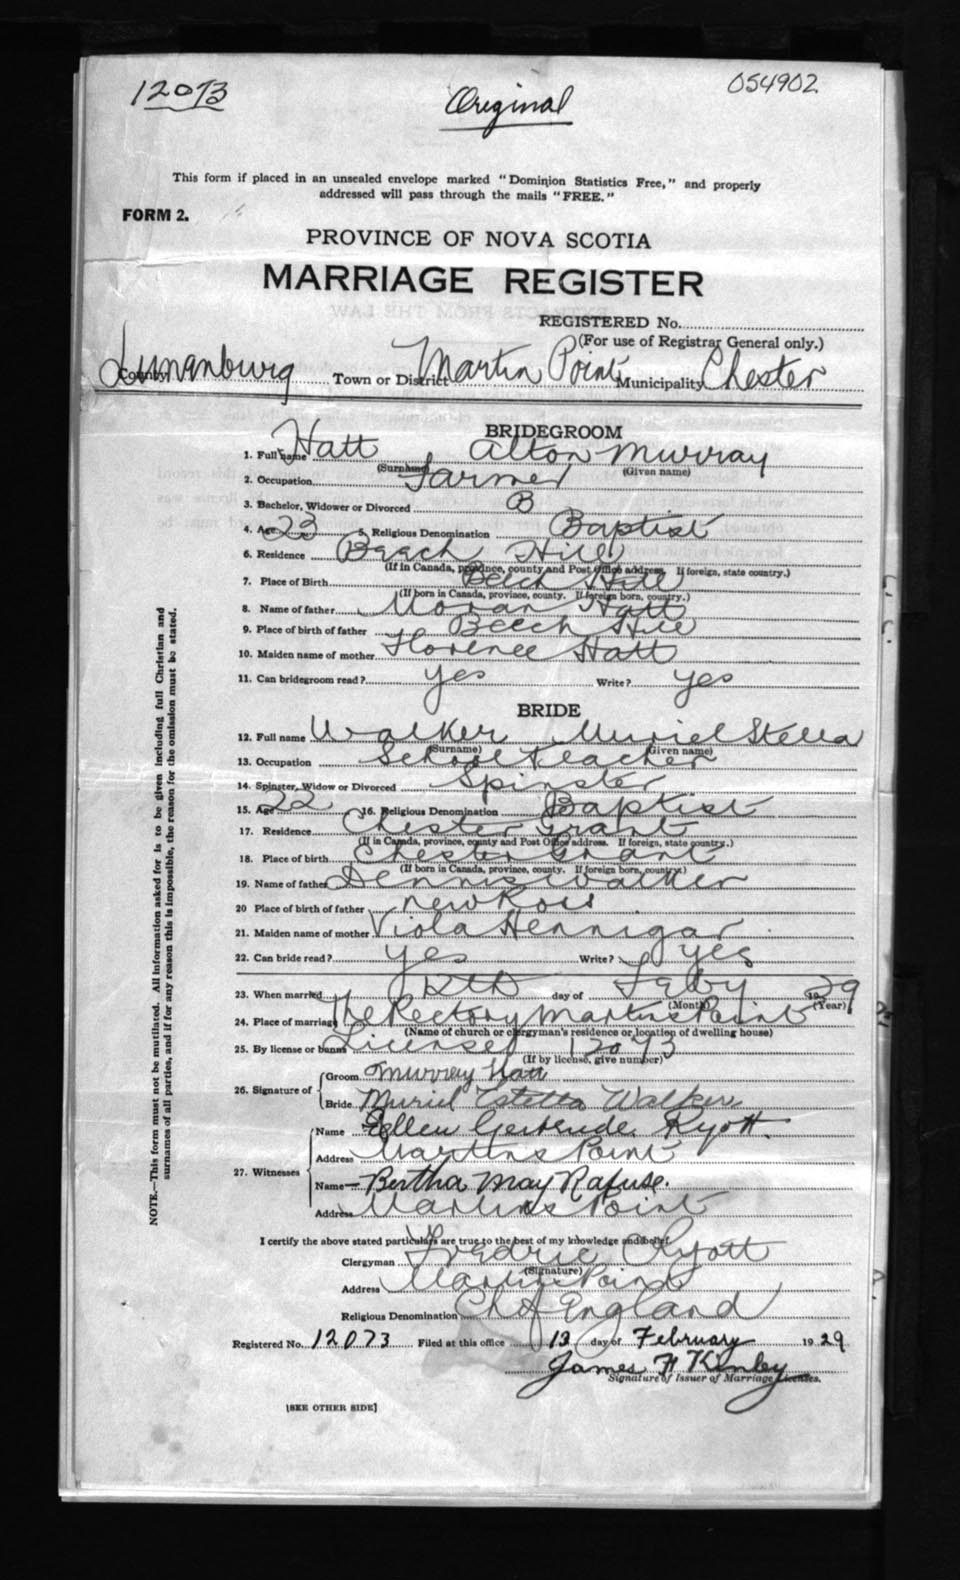 12073
054902
Original
This form if placed in an unsealed envelope marked "Dominion Statistics Free," and properly
addressed will pass through the mails "FREE."
FORM 2.
PROVINCE OF NOVA SCOTIA
MARRIAGE REGISTER
REGISTERED No.
(For use of Registrar General only.)
County Lunenburg Town or District Martin Point Municipality Chester
BRIDEGROOM
1. Full name Hatt Alton Murray
(Surname) (Given name)
2. Occupation Farmer
3. Bachelor, Widower or Divorced B
4. Age 23 5. Religious Denomination Baptist
6. Residence Beech Hill
(If in Canada, province, county and Post Office address. If foreign, state country.)
7. Place of Birth Beech Hill
(If born in Canada, province, county. If foreign born, country.)
8. Name of father Moran Hatt
9. Place of birth of father Beech Hill
10. Maiden name of mother Florence Hatt
11. Can bridegroom read? yes Write? yes
BRIDE
12. Full name Walker Muriel Stella
(Surname) (Given name)
13. Occupation School Teacher
14. Spinster, Widow or Divorced Spinster
15. Age 22 16. Religious Denomination Baptist
17. Residence Chester Grant
(If in Canada, province, county and Post Office address. If foreign, state country.)
18. Place of birth Chester Grant
(If born in Canada, province, county. If foreign born, country.)
19. Name of father Dennis Walker
20 Place of birth of father New Ross
21. Maiden name of mother Viola Hennigar
22. Can bride read? yes Write? yes
23. When married day of Feby 1929
(Month) (Year)
24. Place of marriage The Rectory Martins Point
(Name of church or clergyman's residence or location of dwelling house)
25. By license or banns License 12073
(If by license, give number)
26. Signature of Groom Murray Hatt
Bride Muriel Estella Walker
27. Witnesses Name Ellen Gertrude Ryott.
Address Martins Point
Name Bertha May Rafuse.
Address Martins Point
I certify the above stated particulars are true to the best of my knowledge and belief.
Clergyman Fredric Ryott
(Signature)
Address Martins Point
Religious Denomination Ch of England
Registered No. 12073 Filed at this office 12 day of February 1929
James F Kinley
Signature of Issuer of Marriage Licenses.
[SEE OTHER SIDE]
NOTE.—This form must not be mutilated. All information asked for is to be given including full Christian and
surnames of all parties, and if for any reason this is impossible, the reason for the omission must be stated.